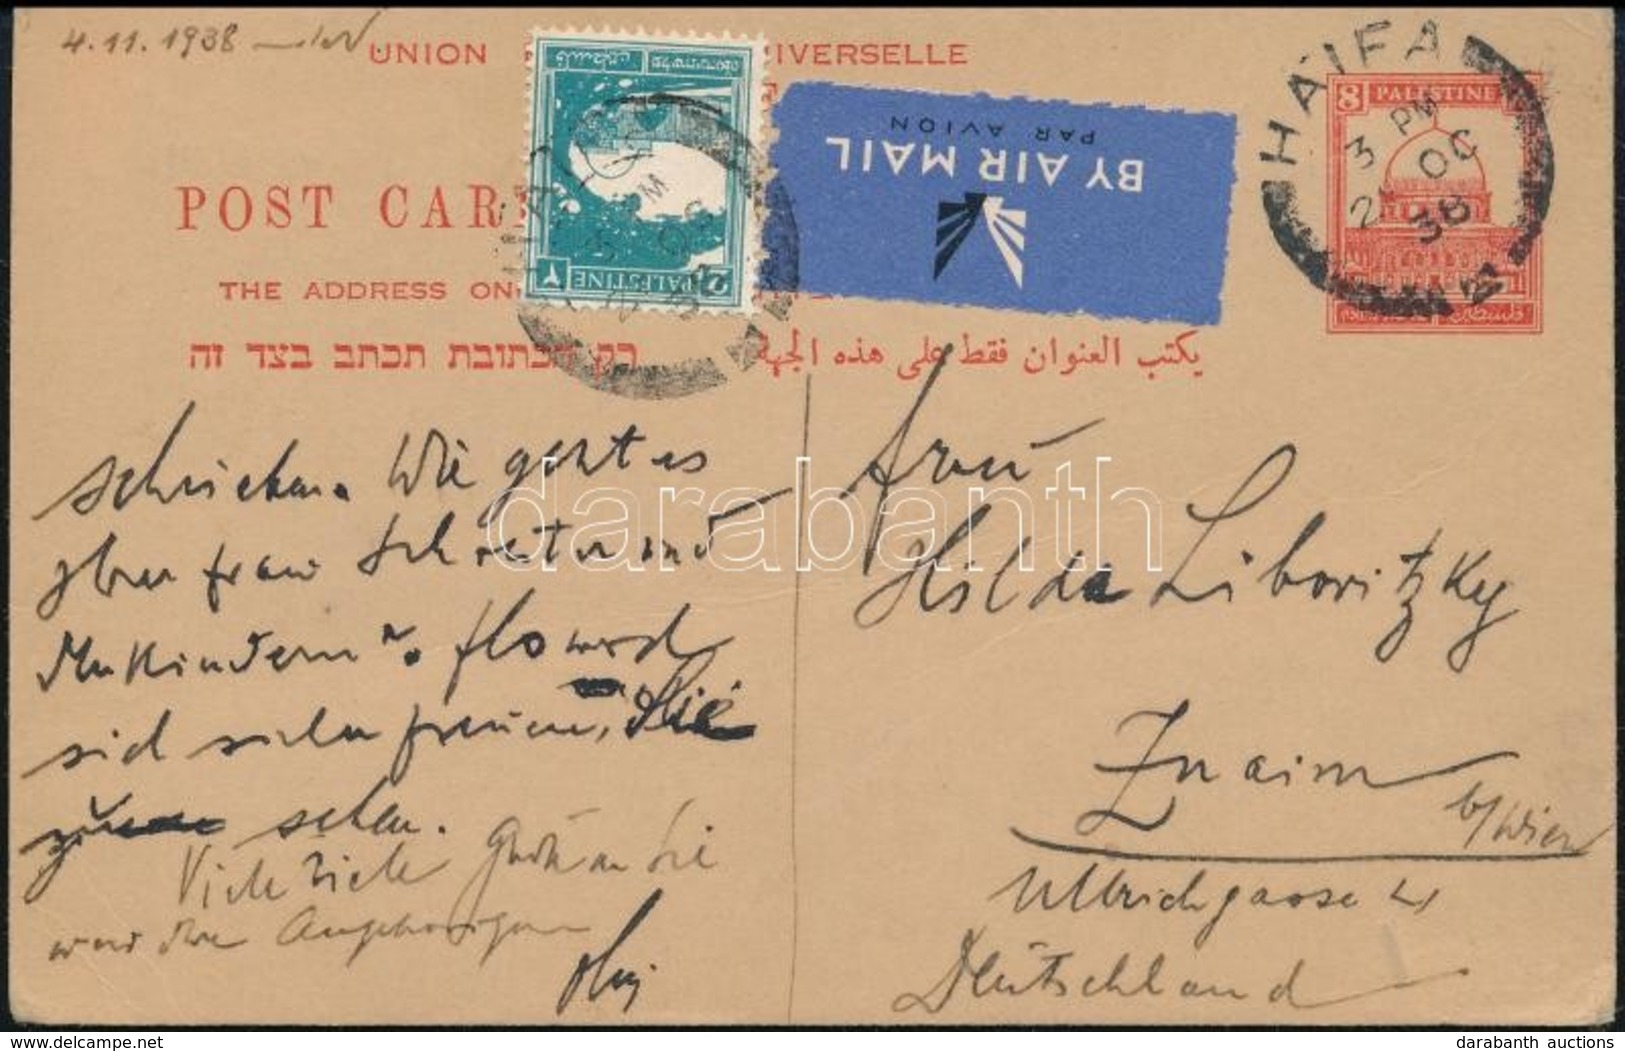 4.11.1938
UNION IVERSELLE
POST CAR
THE ADDRESS ON
רק הכתובת תכתב בצד זה
يكتب العنوان فقط على هذه الجهة
PALESTINE
2
BY AIR MAIL
PAR AVION
HAIFA
3 PM
2 OC
38
8 PALESTINE
schrieben. Wie geht es
Ihrer Frau Schwester und
den Kindern?
sich sicher freuen, Sie
sehen.
Viele viele Grüße an Sie
und Ihre Angehörigen
Frau
Hilda Liboritzky
Znaim
b/Wien
Ullrichgasse
Deutschland
darabanth
darabanth auctions
www.delcampe.net